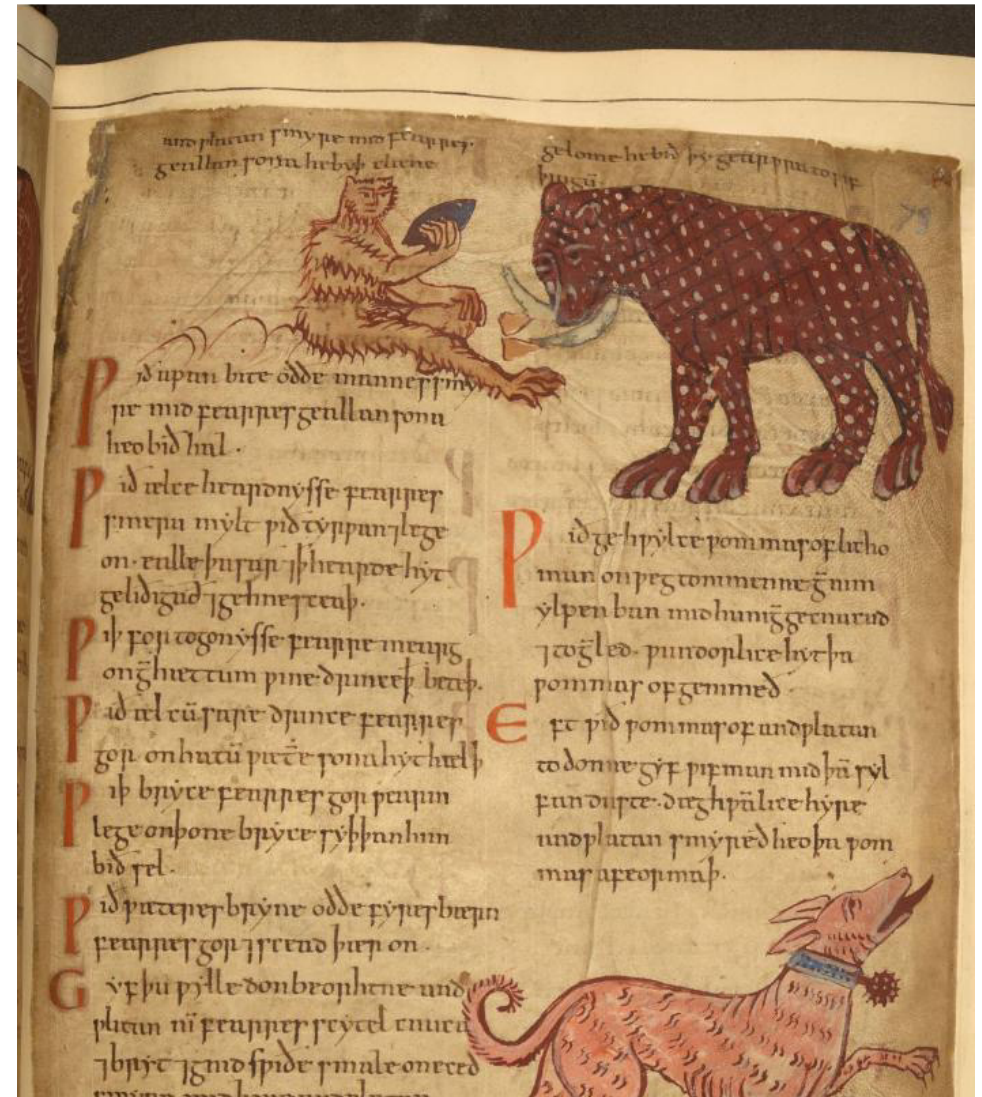 andƿlatan smyre mid fearres
geallan sona he byþ clæne
Ƿið apan bite oððe mannes smy
re mid fearres geallan sona
heo bið hal.
Ƿið ælce heardnysse fearres
smeru mylt ƿið tyrƿan ⁊ lege
on. ealle þa sar ⁊ ꝥ hearde hyt
geliðigað ⁊ gehnesceaþ.
Ƿiþ fortogonysse fearres mearg
on ḡhættum ƿine drince ꝥ beteþ.
Ƿið æl cū sare drince fearres
gor on hatū ƿæt̄e sona hyt hælþ
Ƿiþ bryce fearres gor ƿearm
lege on þone bryce syþþan him
bið sel.
Ƿið ƿæteres bryne oððe fyres bærn
fearres gor ⁊ scead þær on.
Gyf þu ƿylle don beorhtne and
ƿlitan nī fearres scytel cnuca
⁊ bryt ⁊ gnid sƿiðe smale on eced
gelome he bið þy
þingū.
79
Ƿið gehƿylce ƿommas of licho
man onƿeg to nimenne ḡnim
ylpen ban mid huniḡ gecnucud
⁊ toḡled. ƿundorlice hyt þa
ƿommas of genimeð.
Eft ƿið ƿommas of andƿlatan
to donne gyf ƿifman mid þā syl
fan duste. dæghƿālice hyre
andƿlatan smyreð heo þa ƿom
mas afeormaþ.